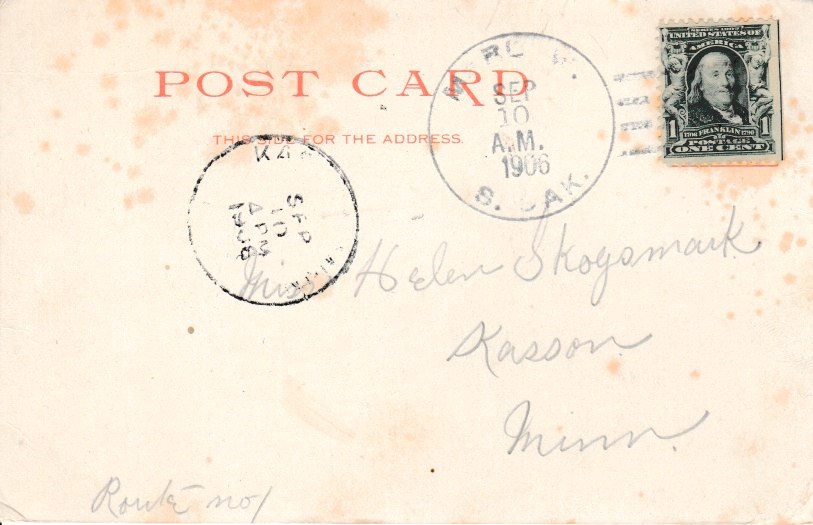 POST CARD
THIS SIDE FOR THE ADDRESS.
SEP
10
A.M.
1906
S. DAK.
SERIES 1902
UNITED STATES OF
AMERICA
1706 FRANKLIN 1790
1 1
POSTAGE
ONE CENT
SEP
10
4 PM
Miss Helen Skogsmark
Kasson
Minn.
Route no 1